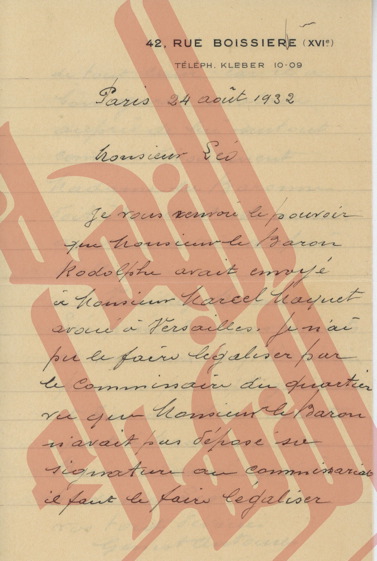 42, RUE BOISSIERE (XVIe)
TÉLÉPH. KLEBER 10-09
Paris 24 août 1932
Monsieur Léo
Je vous renvoie le pouvoir
que Monsieur le Baron
Rodolphe avait envoyé
à Monsieur Marcel
avoué à Versailles. Je n'ai
pu le faire légaliser par
le commissaire du quartier
vu que Monsieur le Baron
n'avait pas déposé sa
signature au commissariat
il faut le faire légaliser